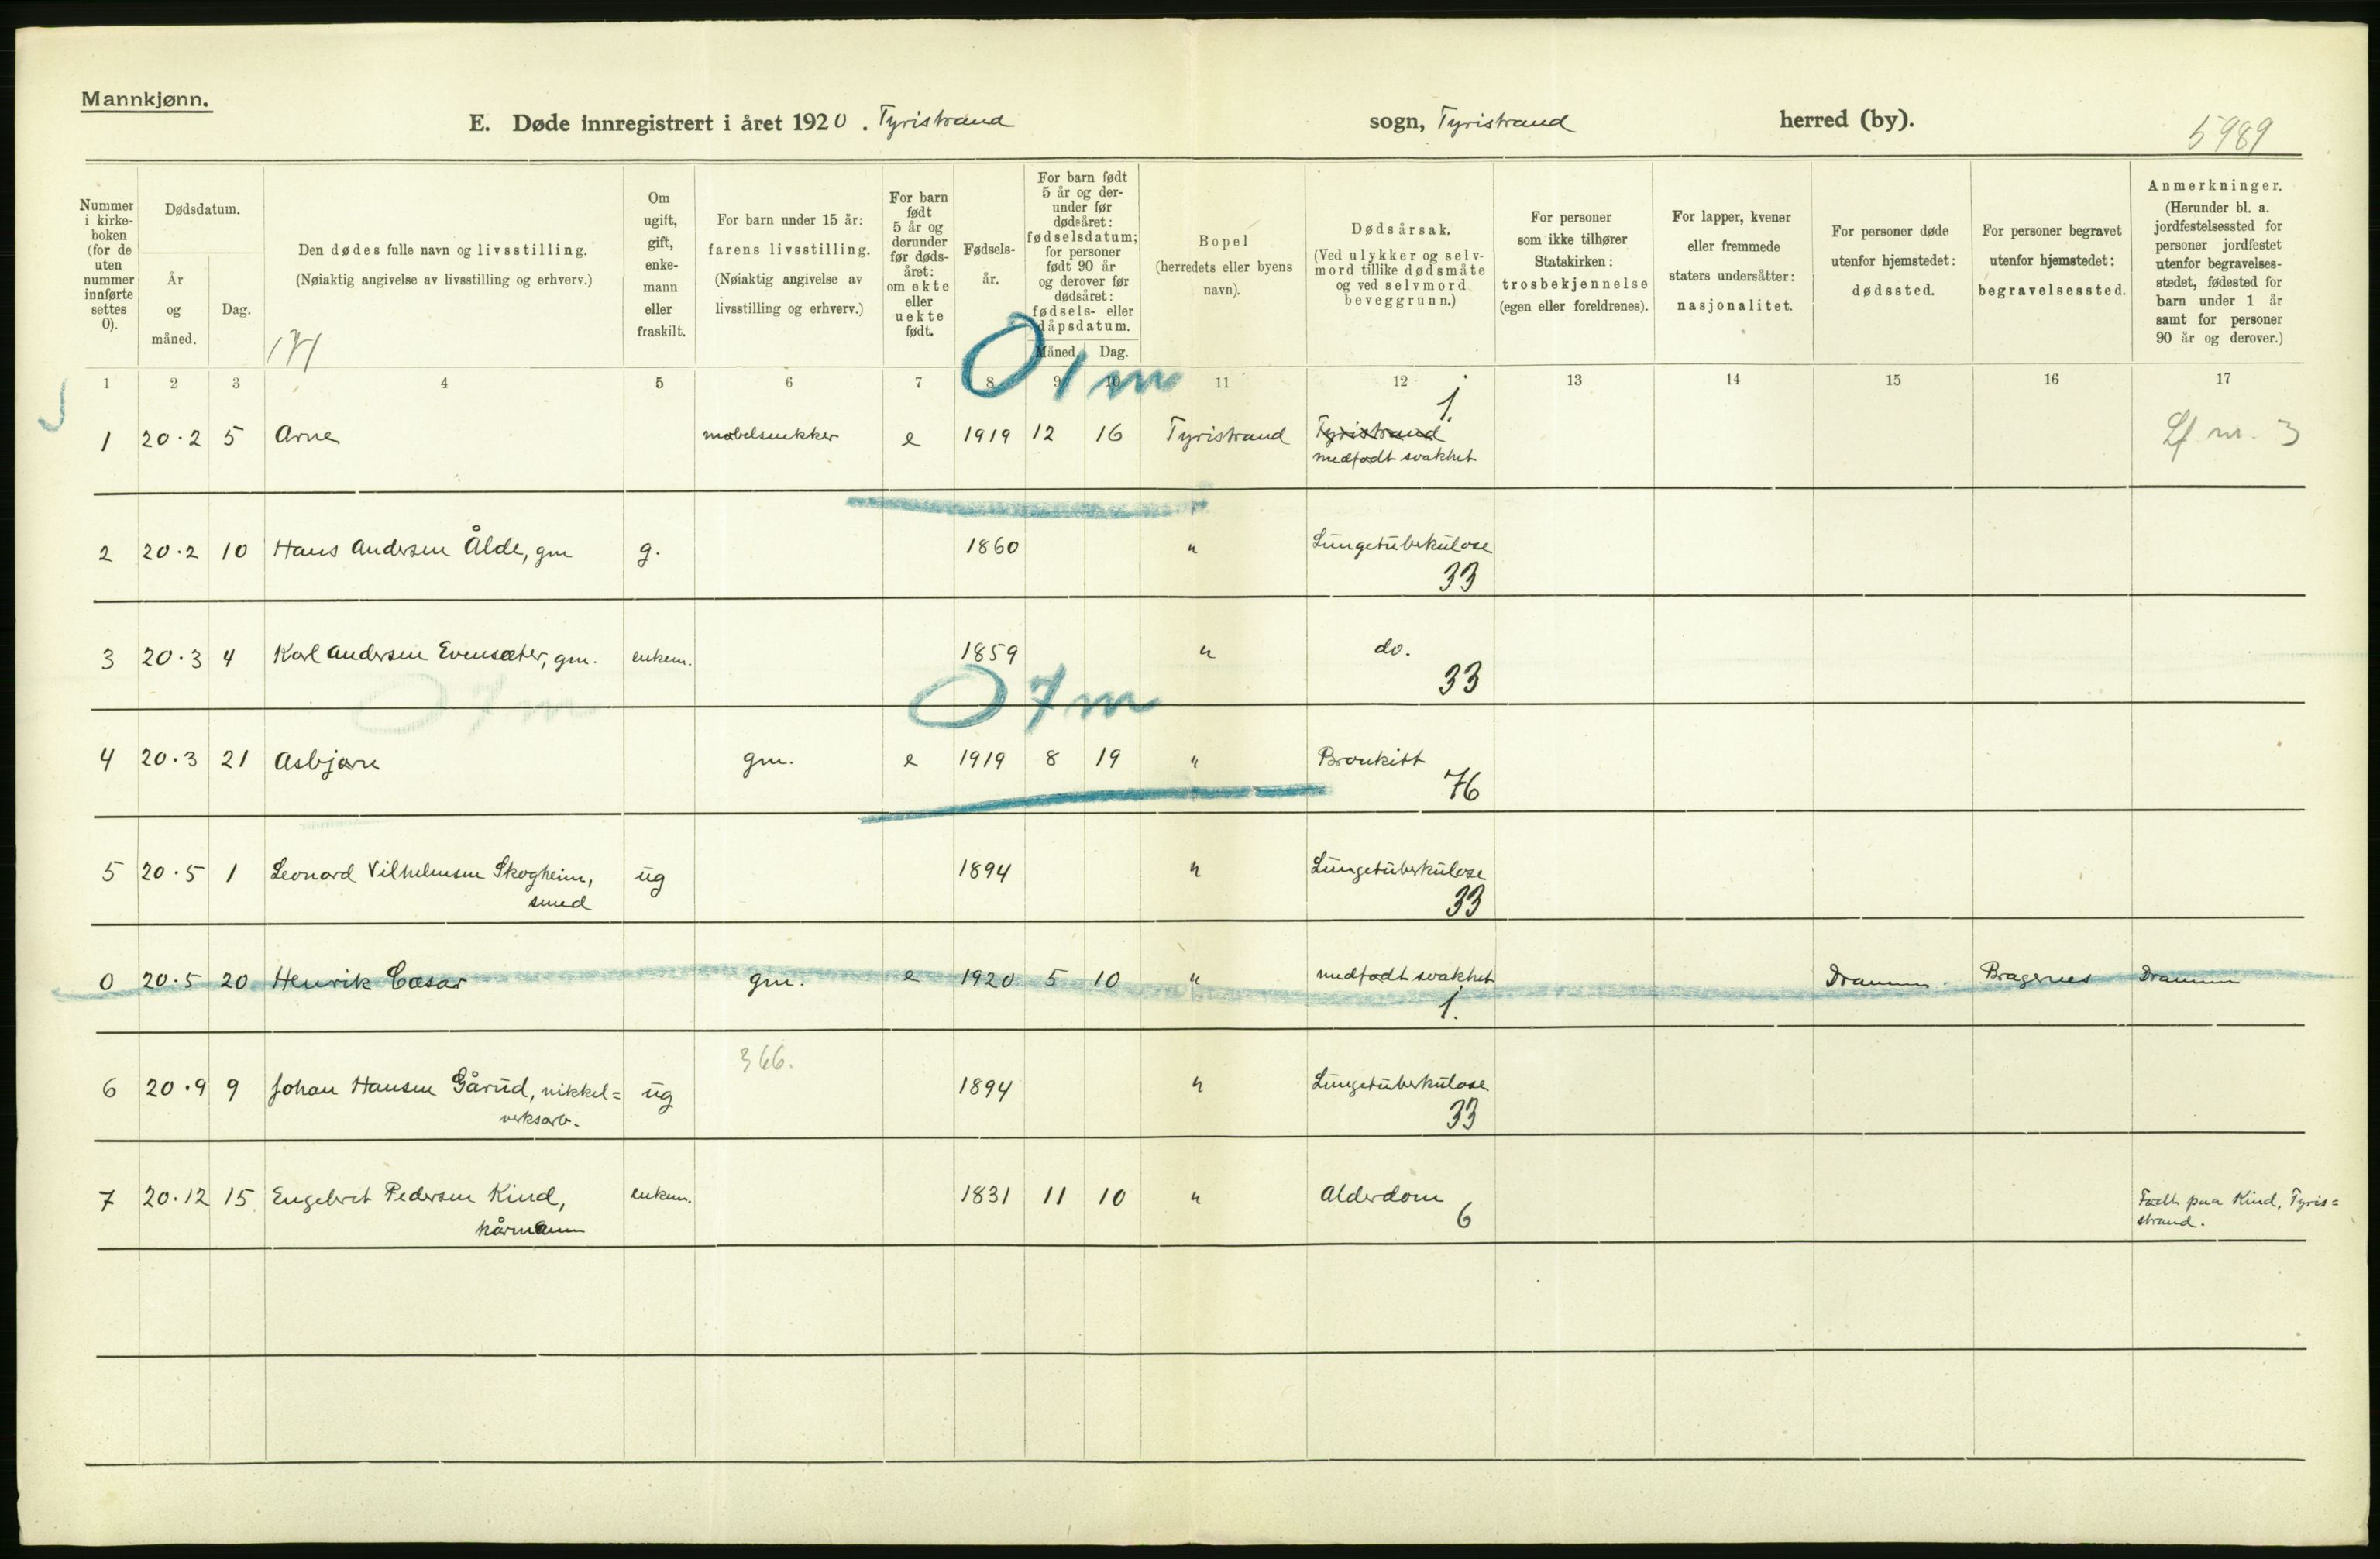 Mannkjønn.
E. Døde innregistrert i året 1920. Tyristrand sogn, Tyristrand herred (by).
5989
Nummer i kirke-boken (for de uten nummer innførte settes 0).
Dødsdatum.
År og måned.
Dag.
Den dødes fulle navn og livsstilling.
(Nøiaktig angivelse av livsstilling og erhverv.)
Om ugift, gift, enke-mann eller fraskilt.
For barn under 15 år: farens livsstilling.
(Nøiaktig angivelse av livsstilling og erhverv.)
For barn født 5 år og derunder før døds-året: om ekte eller uekte født.
Fødsels-år.
For barn født 5 år og der-under før dødsåret: fødselsdatum; for personer født 90 år og derover før dødsåret: fødsels- eller dåpsdatum.
Måned. Dag.
Bopel
(herredets eller byens navn).
Dødsårsak.
(Ved ulykker og selv-mord tillike dødsmåte og ved selvmord beveggrunn.)
For personer som ikke tilhører Statskirken: trosbekjennelse (egen eller foreldrenes).
For lapper, kvener eller fremmede staters undersåtter: nasjonalitet.
For personer døde utenfor hjemstedet: dødssted.
For personer begravet utenfor hjemstedet: begravelsessted.
Anmerkninger.
(Herunder bl. a. jordfestelsessted for personer jordfestet utenfor begravelses-stedet, fødested for barn under 1 år samt for personer 90 år og derover.)
1 2 3 4 5 6 7 8 9 10 11 12 13 14 15 16 17
0 1 m
1 20.2 5 Arne møbelsnekker e 1919 12 16 Tyristrand Tyristrand 1.
medfødt svakhet
Lf. nr. 3
2 20.2 10 Hans Andersen Ålde, gm g. 1860 " Lungetuberkulose
33
3 20.3 4 Karl Andersen Evensæter, gm. enkem. 1859 " do.
33
0 7 m
4 20.3 21 Asbjørn gm. e 1919 8 19 " Bronkitt
76
5 20.5 1 Leonard Vilhelmsen Skogheim, ug 1894 " Lungetuberkulose
smed 33
0 20.5 20 Henrik Cæsar gm. e 1920 5 10 " medfødt svakhet Drammen. Bragernes Drammen
1.
366.
6 20.9 9 Johan Hansen Gårud, nikkel= ug 1894 " Lungetuberkulose
verksarb. 33
7 20.12 15 Engebret Pedersen Kind, enkem. 1831 11 10 " Alderdom Født paa Kind, Tyris=
kårmann 6 strand.